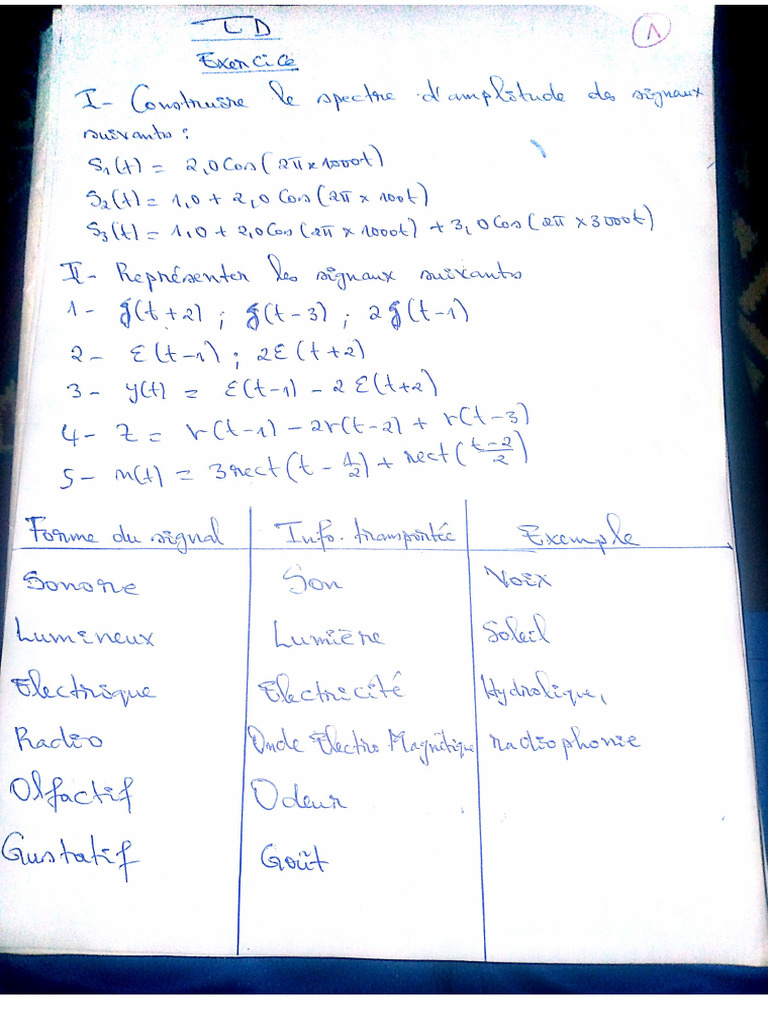 TD
1
Exercice
I- Construire le spectre d'amplitude des signaux
suivants :
S₁(t) = 2,0 Cos(2π x 1000t)
S₂(t) = 1,0 + 2,0 Cos(2π x 100t)
S₃(t) = 1,0 + 2,0 Cos(2π x 1000t) + 3,0 Cos(2π x 3000t)
II- Représenter les signaux suivants
1- δ(t+2) ; δ(t-3) ; 2δ(t-1)
2- Ɛ(t-1) ; 2Ɛ(t+2)
3- y(t) = Ɛ(t-1) - 2Ɛ(t+2)
4- Z = r(t-1) - 2r(t-2) + r(t-3)
5- m(t) = 3rect(t - 1/2) + rect((t-2)/2)
Forme du signal Info. transportée Exemple
Sonore Son Voix
Lumineux Lumière Soleil
Electrique Electricité Hydrolique,
Radio Onde Electro Magnétique radiophonie
Olfactif Odeur
Gustatif Goût